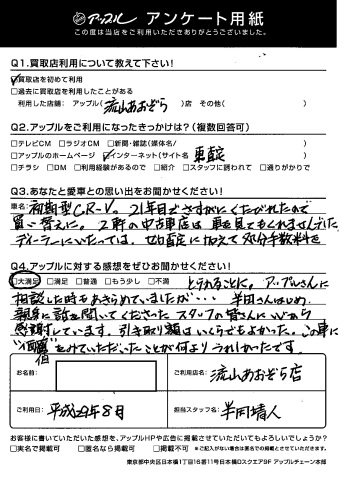 アップル アンケート用紙
この度は当店をご利用いただきありがとうございました。
Q1.買取店利用について教えて下さい!
☑買取店を初めて利用
□過去に買取店を利用したことがある
利用した店舗: アップル( 流山あおぞら )店 その他( )
Q2.アップルをご利用になったきっかけは?(複数回答可)
□テレビCM □ラジオCM □新聞・雑誌(媒体名/ )
□アップルのホームページ ☑インターネット(サイト名 )
□チラシ □DM □利用経験があるので □紹介 □スタッフに誘われて □通りがかりで
Q3.あなたと愛車との思い出をお聞かせください!
車名: 初期型CR-V。21年目でさすがにくたびれたので
買い替えに。2軒の中古車店は車を見てもくれませんでした
ディーラーにいたっては、ゼロ査定に加えて処分手数料を
Q4.アップルに対する感想をぜひお聞かせください!
□大満足 □満足 □普通 □もう少し □不満 とられることに。アップルさんに
相談した時もあきらめていましたが・・・ 半田さんはじめ
親身に話を聞いてくださったスタッフの皆さんに心から
感謝しています。引き取り額はいくらでもよかった。この車に
"価値"をみていただいたことが何よりうれしかったです。
お名前:
ご利用店名: 流山あおぞら店
ご利用日: 平成29年8月
担当スタッフ名: 半田
お客様に書いていただいた感想を、アップルHPや広告に掲載させていただいてもよろしいでしょうか?
□実名で掲載可 □匿名なら掲載可 □掲載不可 ※ご記入がない場合は匿名での掲載とさせていただきます。
東京都中央区日本橋1丁目16番11号日本橋Dスクエア9F アップルチェーン本部